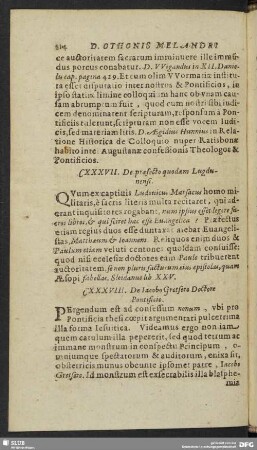 D. OTHONIS MELANDRI
ce auctoritatem sacrarum imminuere ille immun-
dus porcus conabatur. D. VVigandus in XII. Danie-
lis cap. pagina 429. Et cum olim VVormatiæ institu-
ta esset disputatio inter nostros & Pontificios, in
ipso statim limine colloquii in hanc obviam cau-
sam abruptum fuit, quod cum nostri sibi judi-
cem denominarent scripturam, responsum à Pon-
tificiis tulerunt, scripturam non esse vocem Judi-
cis, sed materiam litis. D. Ægidius Hunnius in Rela-
tione Historica de Colloquio nuper Ratisbonæ
habito inter Augustanæ confessionis Theologos &
Pontificios.
CXXXVII. De præfecto quodam Lugdu-
nensi.
QVum ex captivis Ludovicus Marsacus homo mi-
litaris, è sacris literis multa recitaret, qui ad-
erant inquisitores rogabant, num ipsius esset legere sa-
cros libros, & qui sciret hæc esse Euangelica? Præfectus
etiam regius duos esse duntaxat aiebat Euangeli-
stas, Matthæum & Ioannem. Reliquos enim duos &
Paulum etiam veluti centones quosdam consuisse:
quod nisi ecclesiæ doctores eam Paulo tribuerent
auctoritatem se non pluris facturum eius epistolas, quam
Æsopi fabellas. Sleidanus lib. XXV.
CXXXVIII. De Iacobo Gretsero Doctore
Pontificio.
PErgendum est ad consessum nonum, vbi pro
Pontificia thesi cœpit argumentari pulcerrima
illa forma Iesuitica. Videamus ergo non iam
quem carculum illa pepererit, sed quod teterrimum ac
immane monstrum in conspectu Principum,
omniumque spectatorum & auditorum, enixa sit,
obstetricis munus obeunte ipsomet patre, Iacobo
Gretsero. Id monstrum est exsecrabilis illa blasphe-
mia
SLUB